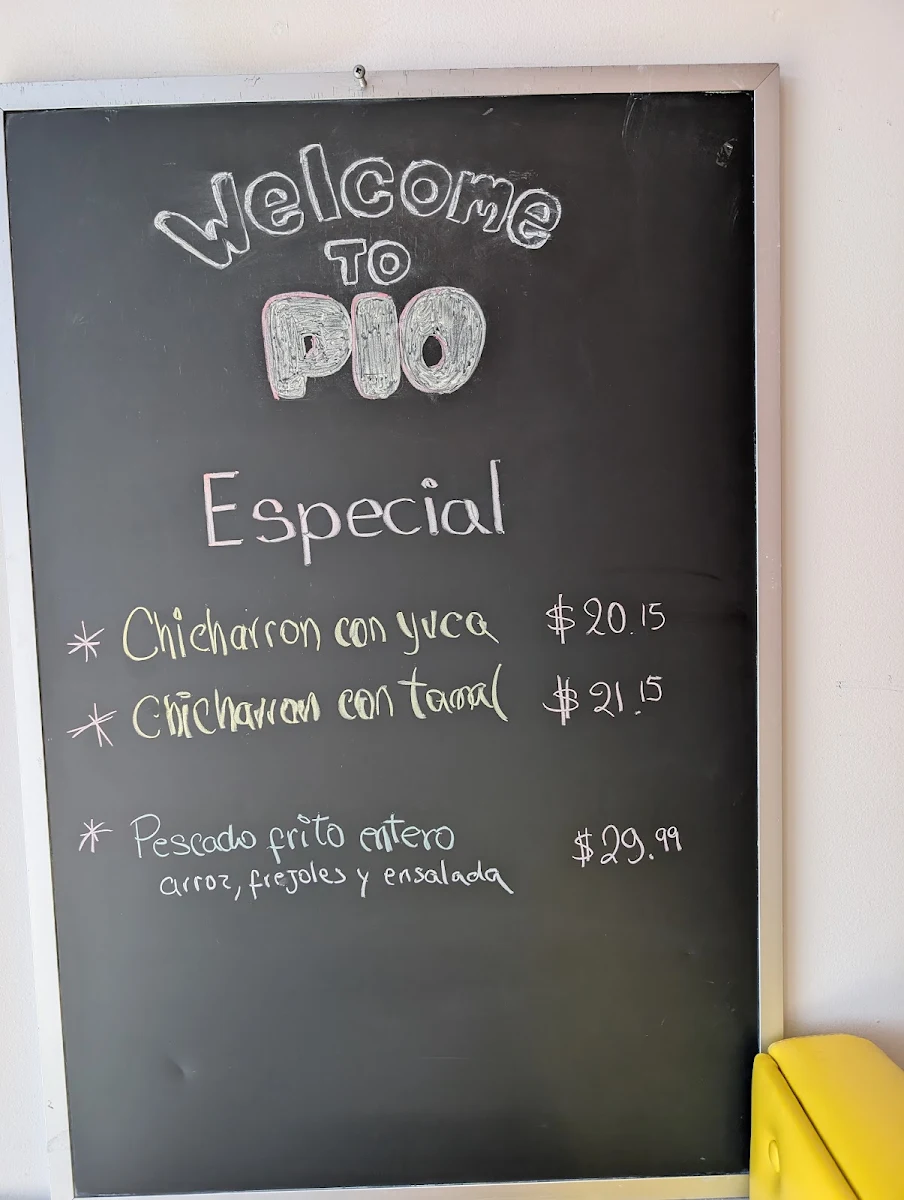 Welcome
TO
PIO
Especial
* Chicharron con yuca $20.15
* Chicharron con tamal $21.15
* Pescado frito entero $29.99
arroz, frejoles y ensalada